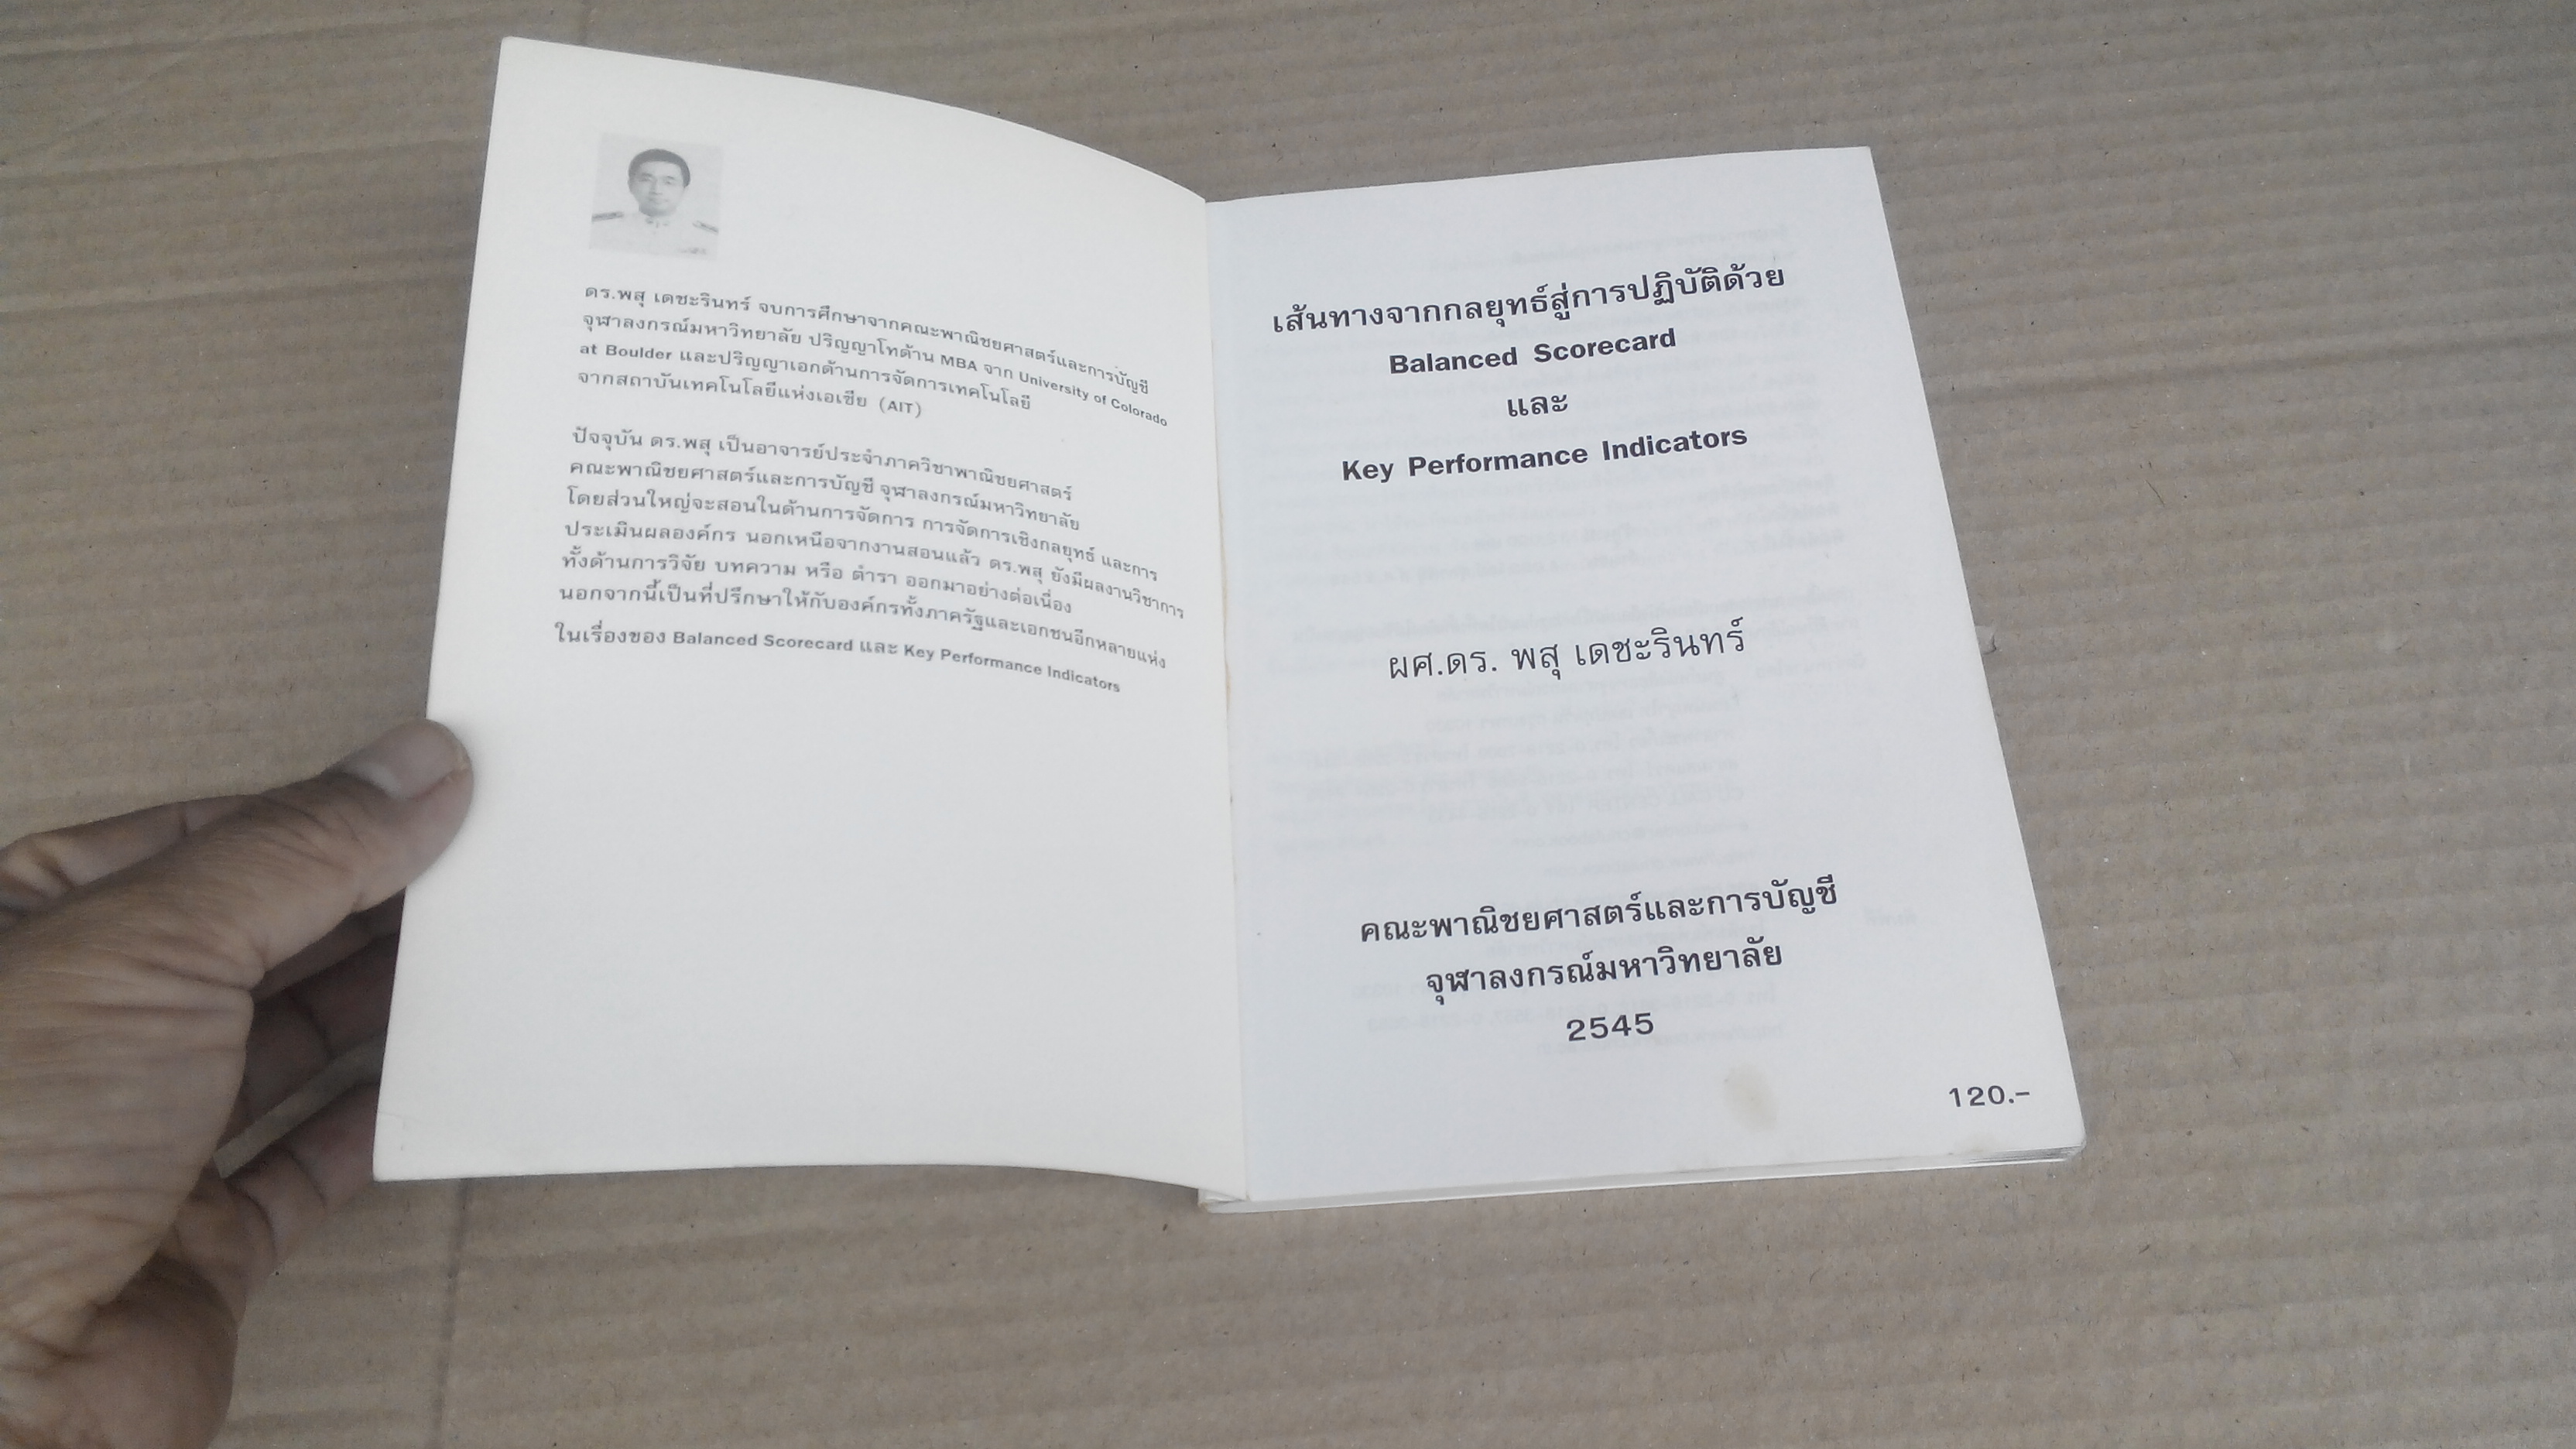 ดร.พสุ เดชะรินทร์ จบการศึกษาจากคณะพาณิชยศาสตร์และการบัญชี
จุฬาลงกรณ์มหาวิทยาลัย ปริญญาโทด้าน MBA จาก University of Colorado
at Boulder และปริญญาเอกด้านการจัดการเทคโนโลยี
จากสถาบันเทคโนโลยีแห่งเอเซีย (AIT)
ปัจจุบัน ดร.พสุ เป็นอาจารย์ประจำภาควิชาพาณิชยศาสตร์
คณะพาณิชยศาสตร์และการบัญชี จุฬาลงกรณ์มหาวิทยาลัย
โดยส่วนใหญ่จะสอนในด้านการจัดการ การจัดการเชิงกลยุทธ์ และการ
ประเมินผลองค์กร นอกเหนือจากงานสอนแล้ว ดร.พสุ ยังมีผลงานวิชาการ
ทั้งด้านการวิจัย บทความ หรือ ตำรา ออกมาอย่างต่อเนื่อง
นอกจากนี้เป็นที่ปรึกษาให้กับองค์กรทั้งภาครัฐและเอกชนอีกหลายแห่ง
ในเรื่องของ Balanced Scorecard และ Key Performance Indicators
เส้นทางจากกลยุทธ์สู่การปฏิบัติด้วย
Balanced Scorecard
และ
Key Performance Indicators
ผศ.ดร. พสุ เดชะรินทร์
คณะพาณิชยศาสตร์และการบัญชี
จุฬาลงกรณ์มหาวิทยาลัย
2545
120.-